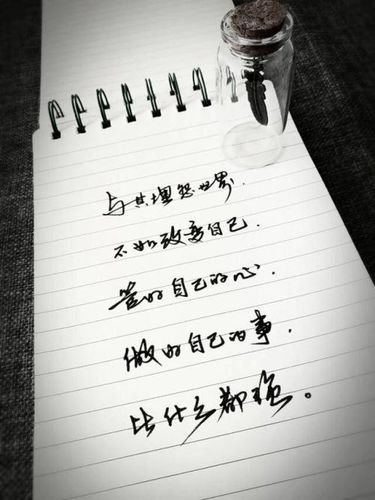 与其埋怨世界,
不如改变自己.
管好自己的心,
做好自己的事,
比什么都强。